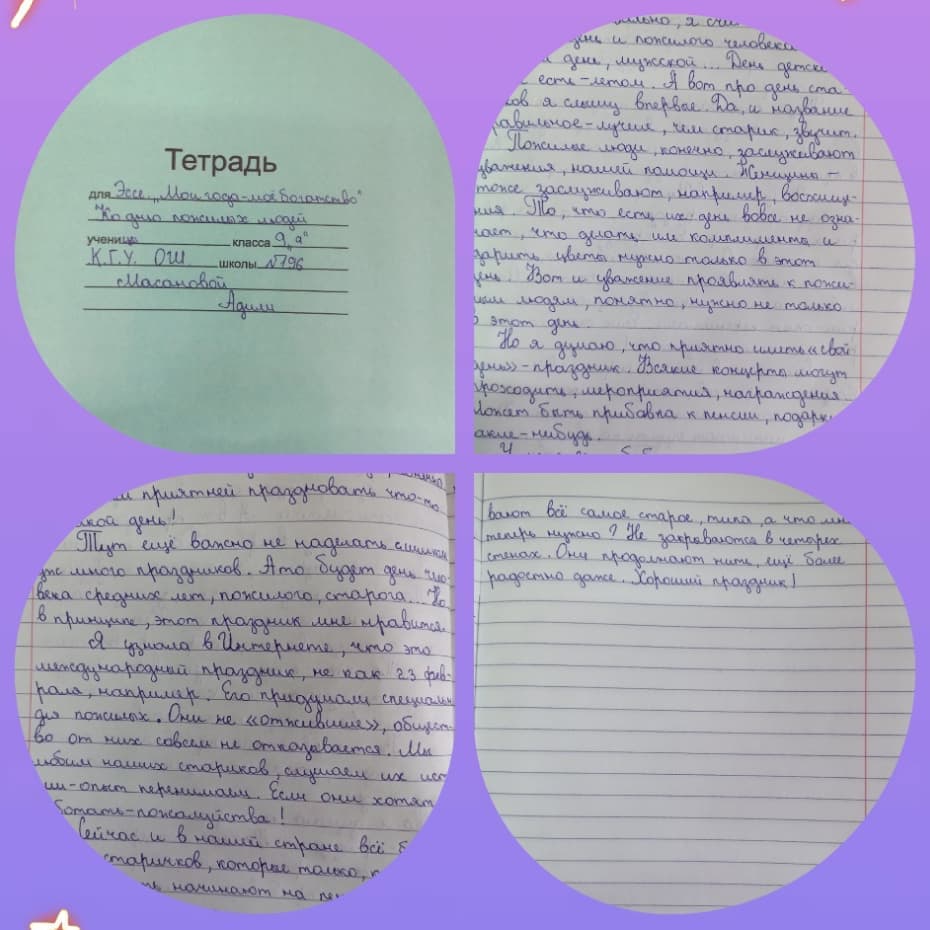 Тетрадь
для Эссе „Мои года-моё богатство"
Ко дню пожилых людей
учени цы класса 9 „а"
К.Г.У. ОШ школы №196
Масановой
Адили
я счи
и пожилого человека
день, мужской... День детск
есть-летом. А вот про день ста-
ов я слышу впервые. Да, и название
равильное-лучше, чем старик, звучит.
Пожилые люди, конечно, заслуживают
уважения, нашей помощи. Женщины-
тоже заслуживают, например, восхище-
ния. То, что есть их день вовсе не озна-
чает, что делать им комплименты и
дарить цветы нужно только в этот
день. Вот и уважение проявлять к пожи-
лым людям, понятно, нужно не только
в этот день.
Но я думаю, что приятно иметь «свой
день»-праздник. Всякие концерты могут
проходить, мероприятия, награждения.
Может быть прибавка к пенсии, подарк
акие-нибудь.
приятней праздновать что-то
акой день!
Тут ещё важно не наделать слишком
уже много праздников. А то будет день чело-
века средних лет, пожилого, старога... Но
в принципе, этот праздник мне нравится.
Я узнала в Интернете, что это
международный праздник, не как 23 фев-
раля, например. Его придумали специальн
для пожилых. Они не «отжившие», общест-
во от них совсем не отказывается. Мы
любим наших стариков, слушаем их ист
ии-опыт перенимаем. Если они хотят
ботать-пожалуйства!
Сейчас и в нашей стране всё б
старичков, которые только,
начинают на пе
вают всё самое старое, типа, а что мн
теперь нужно? Не закрываются в четырех
стенах. Они продолжают жить, ещё более
радостно даже. Хороший праздник!